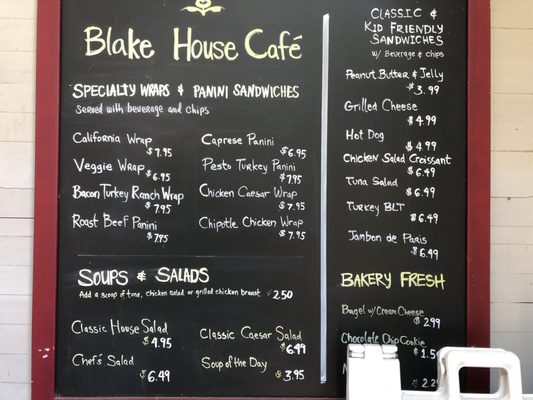 Blake House Café
SPECIALTY WRAPS & PANINI SANDWICHES
Served with beverage and chips
California Wrap
$7.95
Veggie Wrap
$6.95
Bacon Turkey Ranch Wrap
$7.95
Roast Beef Panini
$7.95
Caprese Panini
$6.95
Pesto Turkey Panini
$7.95
Chicken Caesar Wrap
$7.95
Chipotle Chicken Wrap
$7.95
SOUPS & SALADS
Add a scoop of tuna, chicken salad or grilled chicken breast 2.50
Classic House Salad
$4.95
Chef's Salad
$6.49
Classic Caesar Salad
$6.49
Soup of the Day
$3.95
CLASSIC &
KID FRIENDLY
SANDWICHES
w/ Beverage & chips
Peanut Butter & Jelly
$3.99
Grilled Cheese
$4.99
Hot Dog
$4.99
Chicken Salad Croissant
$6.49
Tuna Salad
$6.49
Turkey BLT
$6.49
Jambon de Paris
$6.49
BAKERY FRESH
Bagel w/ Cream Cheese
$2.99
Chocolate Chip Cookie
$1.5
$2.2